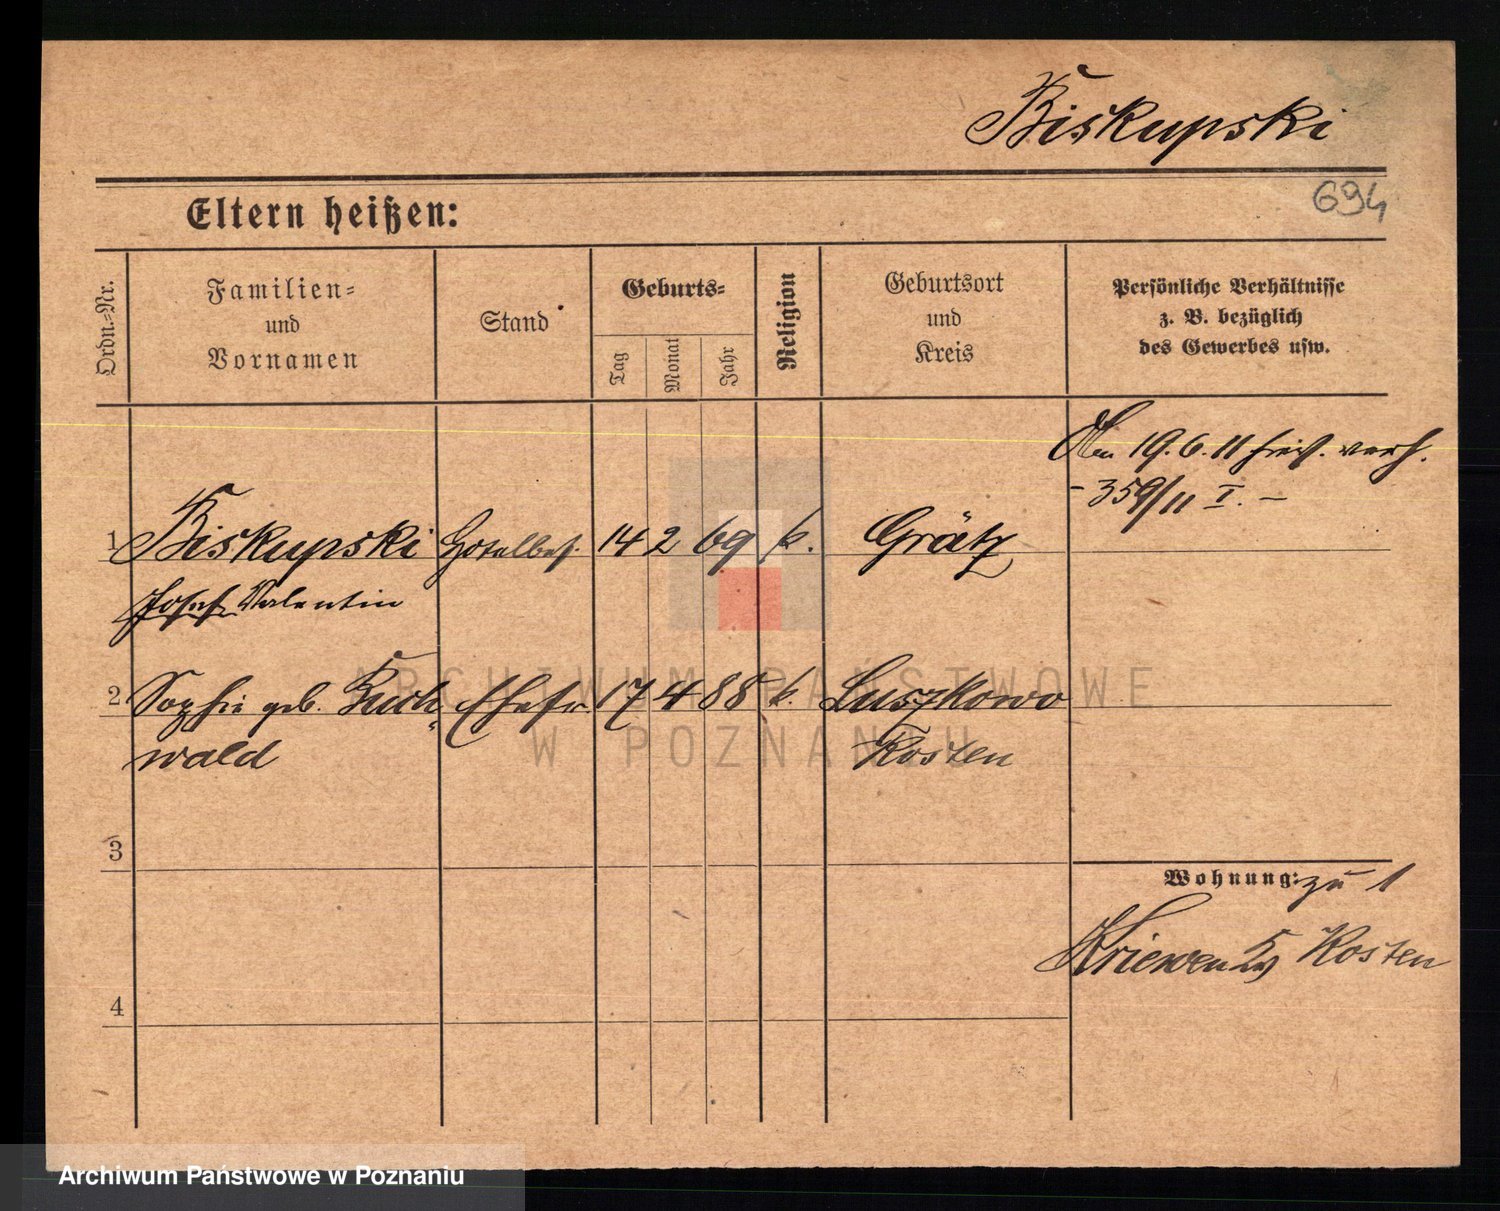 Biskupski
694
Eltern heißen:
Ordn.=Nr.
Familien=
und
Vornamen
Stand
Geburts=
Tag
Monat
Jahr
Religion
Geburtsort
und
Kreis
Persönliche Verhältnisse
z. B. bezüglich
des Gewerbes usw.
Am 19. 6. 11 hies. verh.
- 359/11 I. -
1 Biskupski Hotelbes. 14 2 69 k. Grätz
Josef Valentin
2 Sophie geb. Kuch Ehefr. 17 4 88 k. Luszkowo
wald Kosten
3
Wohnung: zu 1
Kriewen Kosten
4
ARCHIWUM PAŃSTWOWE
W POZNANIU
Archiwum Państwowe w Poznaniu